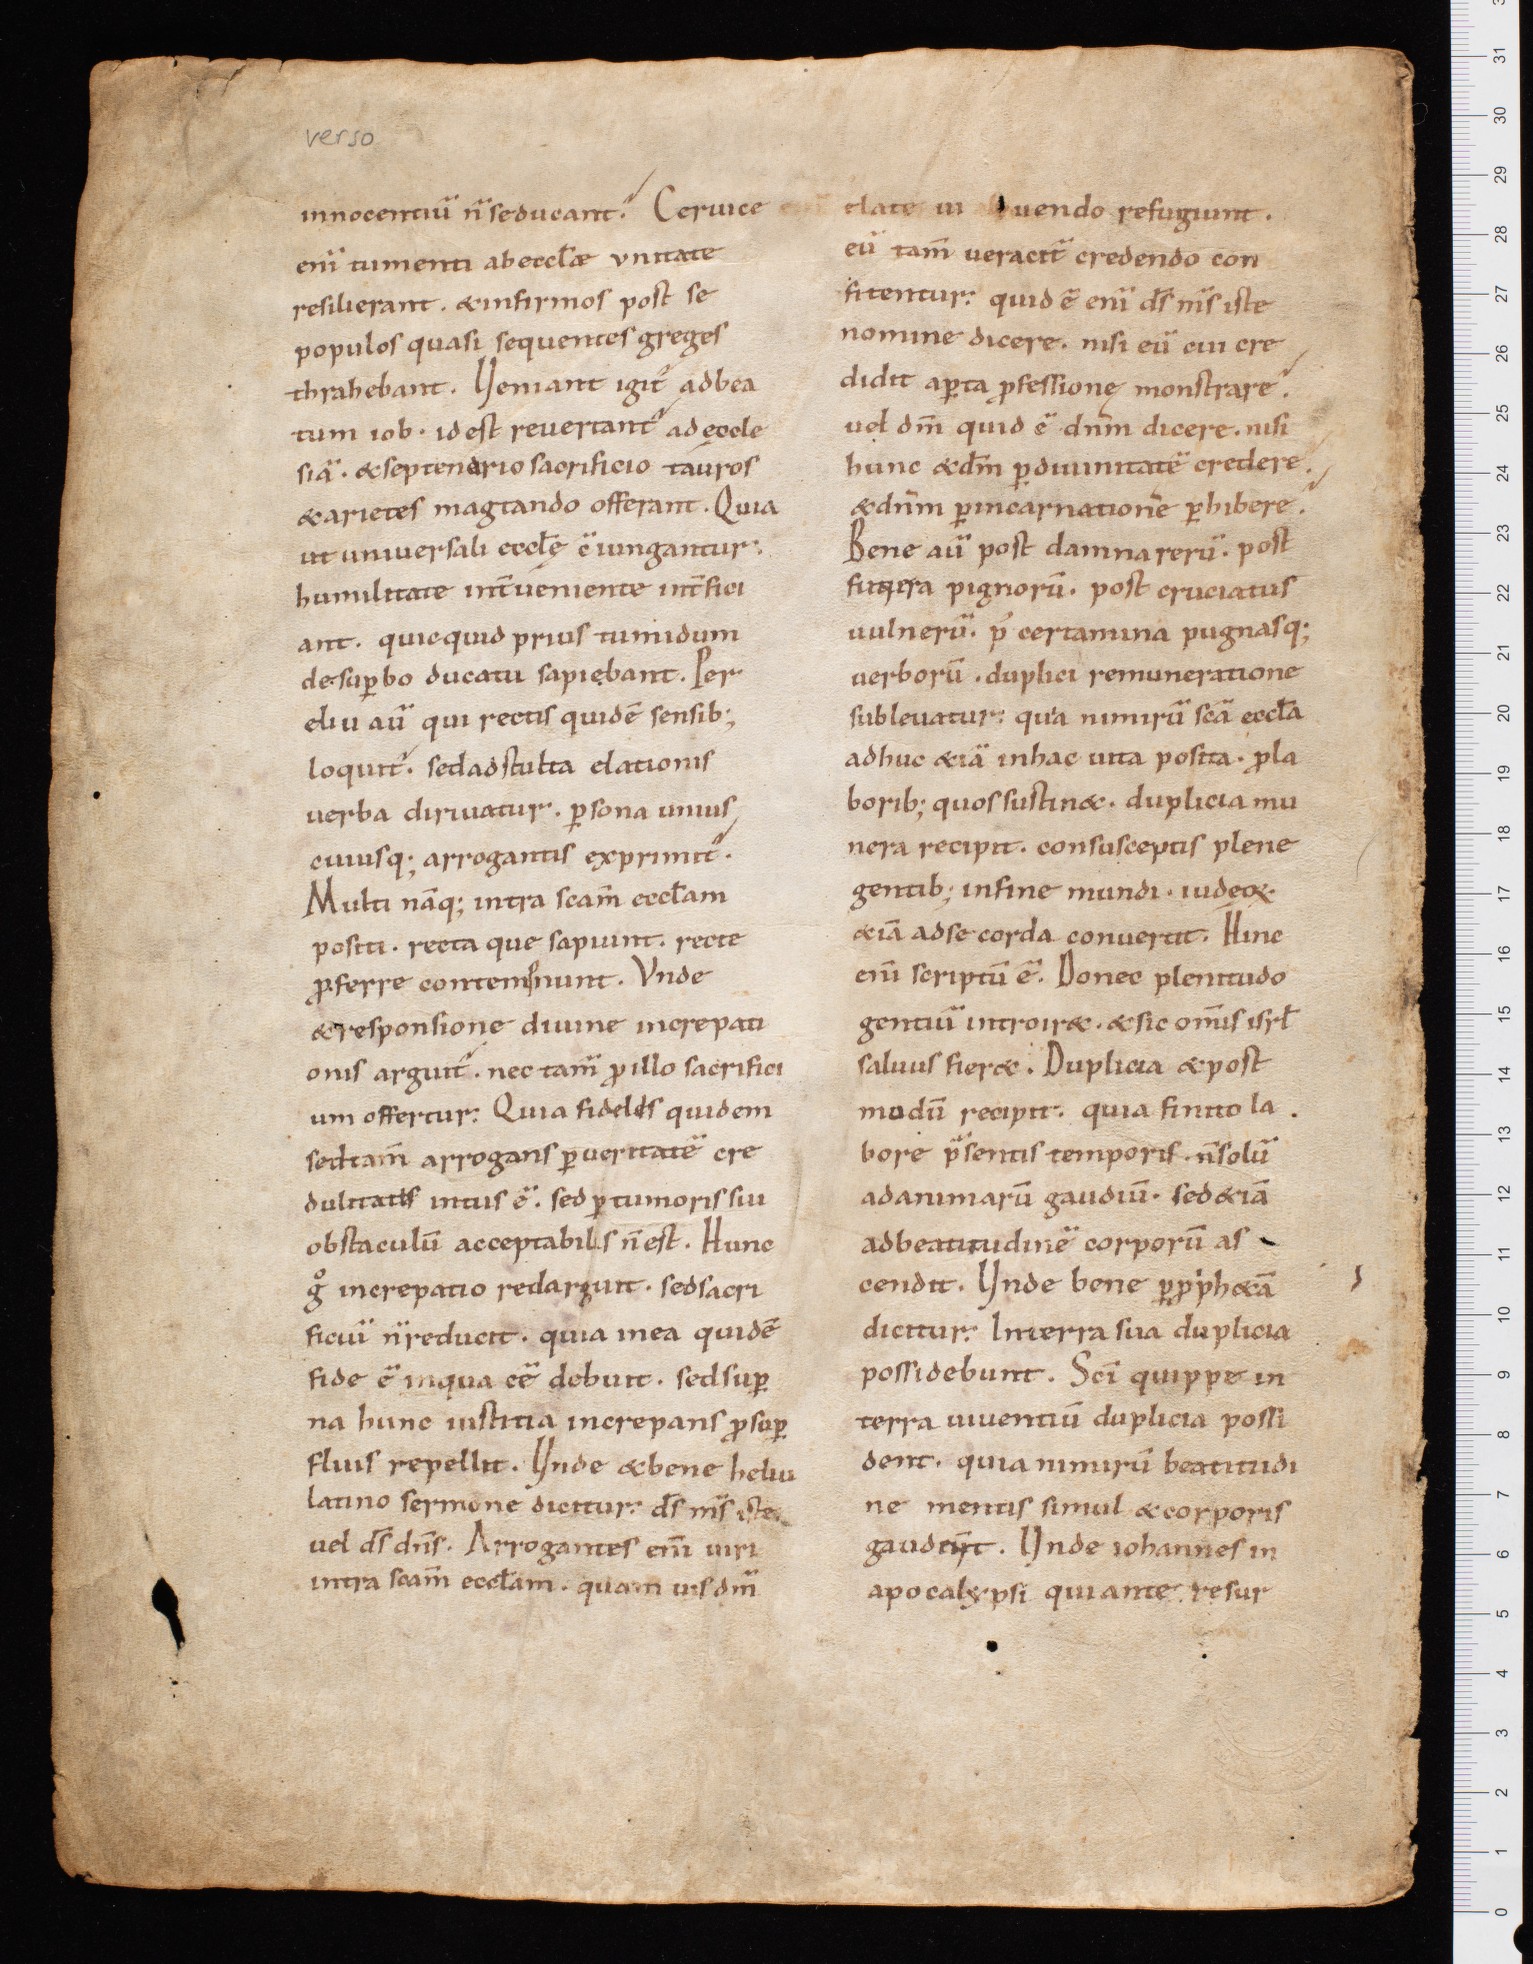 verso
innocentiū n̄ seducant. Ceruice
eni̅ tumenti ab eccl̅æ vnitate
resilierant. & infirmos post se
populos quasi sequentes greges
thrahebant. Veniant igit᷑ ad bea
tum iob. id est reuertant᷑ ad eccle
siā. & septenario sacrificio tauros
& arietes magtando offerant. Quia
ut uniuersali eccl̅ę ē iungantur:
humilitate int̅ueniente int̅fici
ant. quicquid prius tumidum
de suꝑbo ducatu sapiebant. Per
eliu aū qui rectis quidē sensib;
loquit᷑. sed ad stulta elationis
uerba diriuatur. ꝑsona unius
cuiusq; arrogantis exprimit᷑.
Multi nāq; intra scam̅ eccl̅am
positi. recta que sapiunt. recte
ꝓferre contemnunt. Vnde
& responsione diuine increpati
onis arguit᷑. nec tam̅ ꝓ illo sacrifici
um offertur: Quia fidelis quidem
sed tam̅ arrogans ꝑ ueritatē cre
dulitatis intus ē. sed ꝑ tumoris sui
obstaculū acceptabilis n̄ est. Hunc
gͦ increpatio redarguit. sed sacri
ficiū n̄ reducit. quia in ea quidē
fide ē in qua eē debuit. sed suꝑ
na hunc iustitia increpans ꝓ suꝑ
fluis repellit. Vnde & bene heliu
latino sermone dicitur: d̅s m̅s iste
uel d̅s dn̅s. Arrogantes eni̅ uiri
intra scam̅ eccl̅am. quam uis dm̅
elate ui uendo refugiunt.
eū tam̅ ueracit̅ credendo con
fitentur: quid ē eni̅ d̅s m̅s iste
nomine dicere. nisi eū cui cre
didit aꝑta ꝓfessione monstrare.
uel dm̅ quid ē dnm̅ dicere. nisi
hunc & dm̅ ꝑ diuinitatē credere.
& dnm̅ ꝑ incarnationē ꝑhibere.
Bene aū post damna rerū. post
funera pignorū. post cruciatus
uulnerū. p̄ certamina pugnasq;
uerborū. duplici remuneratione
subleuatur: quia nimirū scā eccl̅a
adhuc & iā in hac uita posita. ꝓ la
borib; quos sustin&. duplicia mu
nera recipit. cum susceptis plene
gentib; in fine mundi. iudeoꝝ
& iā ad se corda conuertit. Hinc
eni̅ scriptū ē. Donec plenitudo
gentiū introir&. & sic om̅is isrl̅
saluus fier&. Duplicia & post
modū recipit. quia finito la
bore p̄sentis temporis. n̄ solū
ad animarū gaudiū. sed & iā
ad beatitudinē corporū as
cendit. Vnde bene ꝑ ꝓph&ā
dicitur: In terra sua duplicia
possidebunt. Sci̅ quippe in
terra uiuentiū duplicia possi
dent. quia nimirū beatitudi
ne mentis simul & corporis
gaudent. Vnde iohannes in
apocalypsi qui ante resur